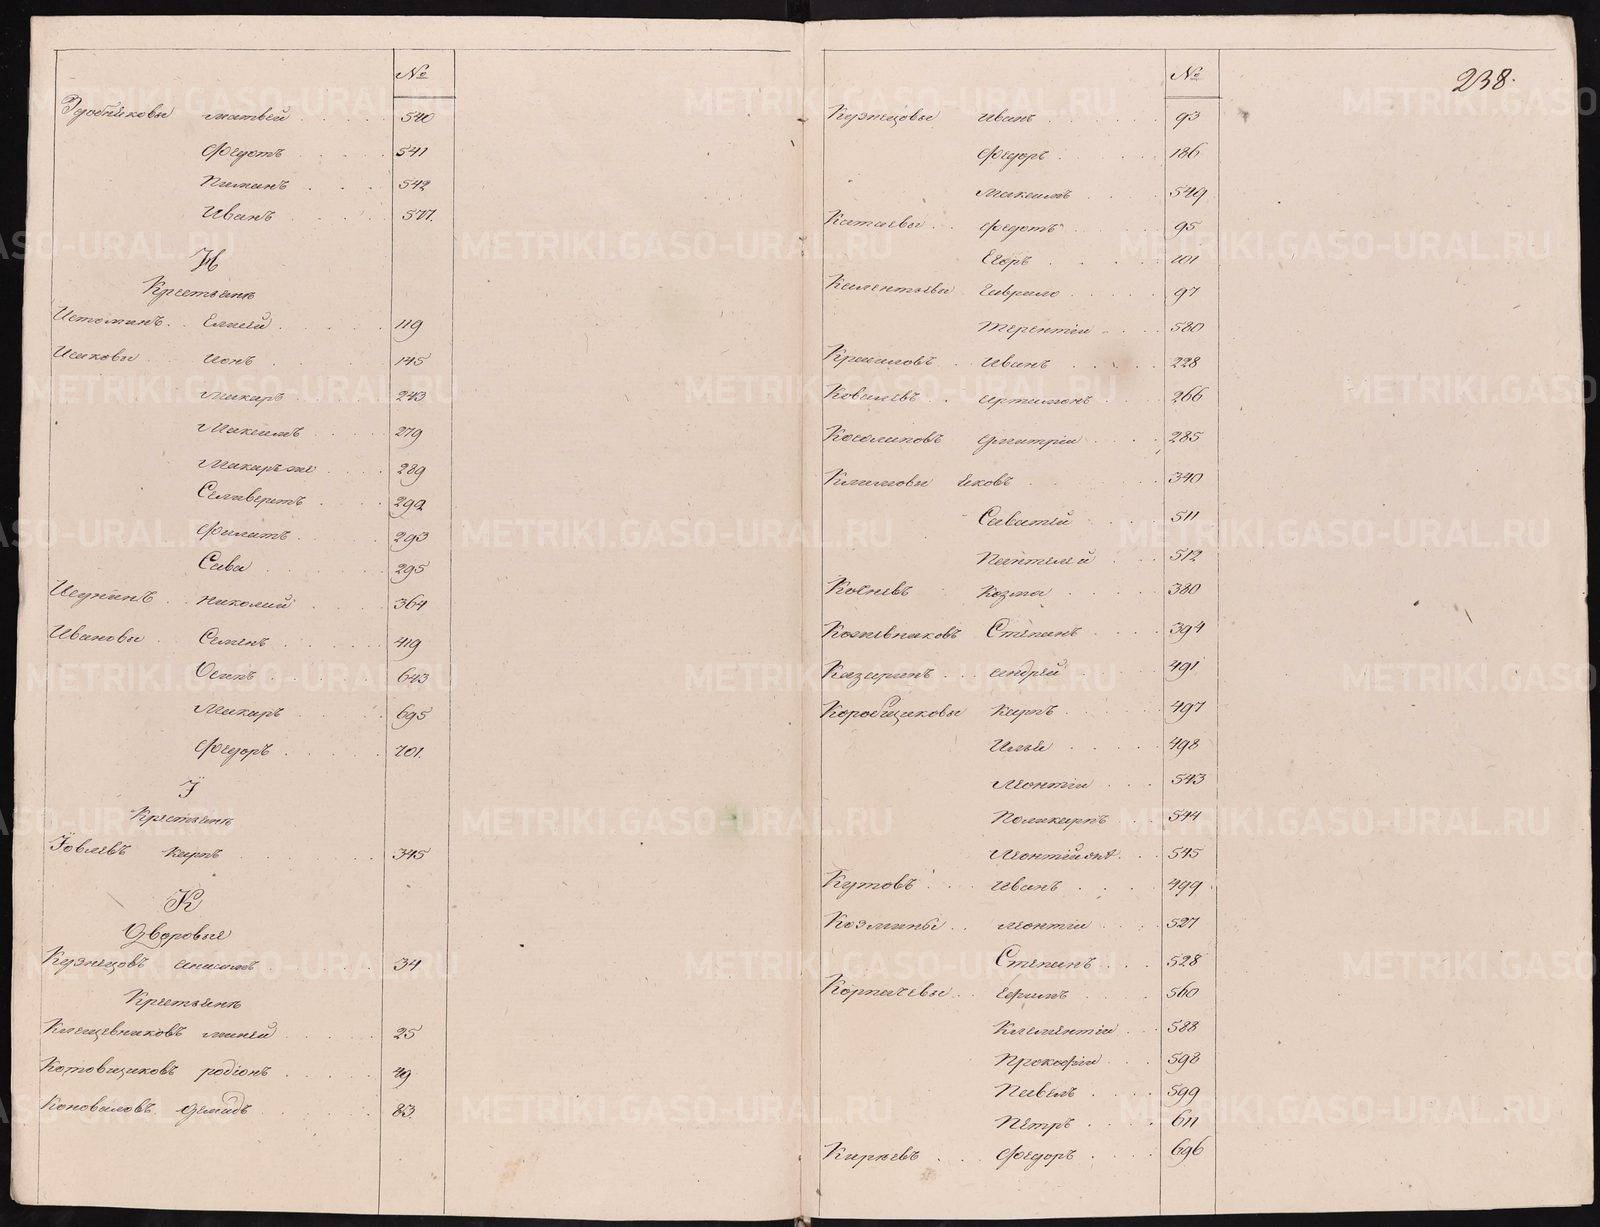 №
Здобниковы Матвей 540
Федотъ 541
Пиманъ 542
Иванъ 577.
И
Крестьяне
Истоминъ Елисей 119
Исаковы Іонъ 145
Макаръ 243
Максимъ 279
Макаръ же 289
Селиверстъ 292
Филатъ 293
Сава 295
Николай 364
Ивановы Семенъ 419
Осипъ 643
Макаръ 695
Федоръ 701.
І
Крестьяне
Іовлевъ Карпъ 345
К
Дворовые
Кузнецовъ Анисимъ 34
Крестьяне
Клещевниковъ Миней 25
Котовщиковъ Родіонъ 49
Коноваловъ Демидъ 83.
№
238.
Кузнецовы Иванъ 93
Федоръ 186
Максимъ 549
Катаевы Федотъ 95
Егоръ 101
Калентьевы Гаврило 97
Терентіи 580
Иванъ 228
Ковалевъ Артамонъ 266
Косолаповъ Дмитріи 285
Климовы Яковъ 340
Саватій 511
Пантелей 512
Козма 380
Кожевниковъ Степанъ 394
Казаринъ Андрей 491
Коробщиковы Карпъ 497
Илья 498
Леонтіи 543
Поликарпъ 544
Леонтій же 545
Кутовъ Иванъ 499
Козмины Леонтіи 527
Степанъ 528
Корпачевы Ефимъ 560
Клементіи 588
Прокофіи 598
Павелъ 599
Петръ 611
Киреевъ Федоръ 696